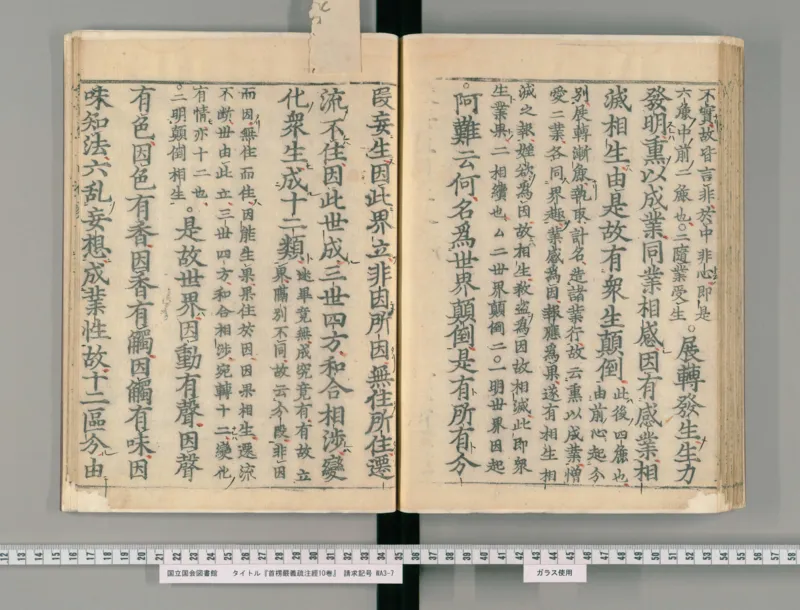 不實故皆言非於中非心即是
六麁中前二麁也二隨業受生
。展轉發生生力
發明熏以成業同業相感因有感業相
滅相生由是故有衆生顛倒
此後四麁也
由前心起分
別展轉漸麁執取計名造諸業行故云熏以成業憎
愛二業各同界趣業感為因報應為果遂有相生相
滅之報婬欲為因故相生殺盗為因故相滅此即衆
生業果二相續也ム二世界顛倒二。一明世界因起
。阿難云何名爲世界顛倒是有所有分
段妄生因此界立非因所因無住所住遷
流不住因此世成三世四方和合相渉變
化衆生成十二類
迷畢竟無成究竟有有故立
界 別不同故云分段非因
而因無住而住因能生果果住故因因果相生遷流
不断世由此立三世四方和合相渉宛轉十二變化
有情亦十二也
。二明顛倒相生
。是故世界因動有聲因聲
有色因色有香因香有觸因觸有味因
味知法六乱妄想成業性故十二區分由
国立国会図書館 タイトル『首楞嚴義疏注經10巻』 請求記号 WA3-7
ガラス使用